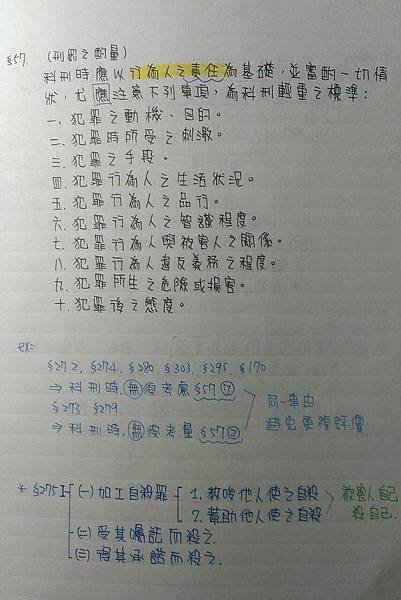 §57. (刑罰之酌量)
科刑時應以行為人之責任為基礎，並審酌一切情
狀，尤應注意下列事項，為科刑輕重之標準：
一、犯罪之動機、目的。
二、犯罪時所受之刺激。
三、犯罪之手段。
四、犯罪行為人之生活狀況。
五、犯罪行為人之品行。
六、犯罪行為人之智識程度。
七、犯罪行為人與被害人之關係。
八、犯罪行為人違反義務之程度。
九、犯罪所生之危險或損害。
十、犯罪後之態度。
ex:
§272、§274、§280、§303、§295、§170
⇒ 科刑時,無須考慮§57⑦
§273、§279、
⇒ 科刑時,無須考量§57②
同一事由
避免重複評價.
* §275I (一)加工自殺罪 1.教唆他人使之自殺
2.幫助他人使之自殺
被害人自己
殺自己.
(二)受其囑託而殺之.
(三)得其承諾而殺之.